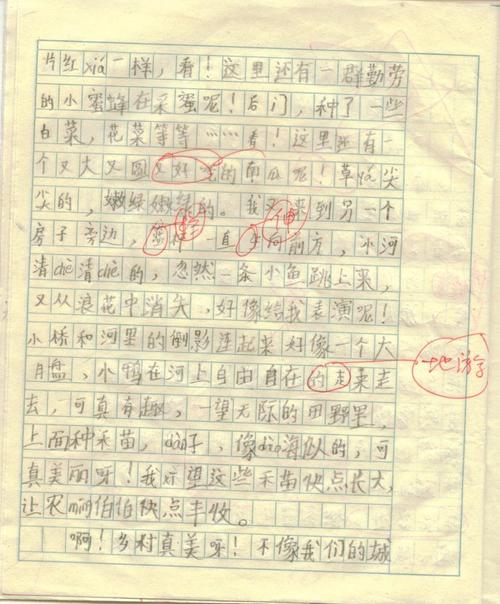 片红xiá一样，看！这里还有一群勤劳
的小蜜蜂在采蜜呢！后门，种了一些
白菜，花菜等等……看！这里还有一
个又大又圆又好吃的南瓜呢！草儿尖
尖的，嫩绿嫩绿的。我又来到另一个
房子旁边，一直向前方，小河
清chè清chè的，忽然一条小鱼跳上来，
又从浪花中消失，好像给我表演呢！
小桥和河里的倒影连起来好像一个大
月盘，小鸭在河上自由自在的走来走
地游
去，可真有趣，一望无际的田野里，
上面种禾苗，dào子，像dào海似的，可
真美丽呀！我希望这些禾苗快点长大，
让农mín伯伯快点丰收。
啊！乡村真美呀！不像我们的城